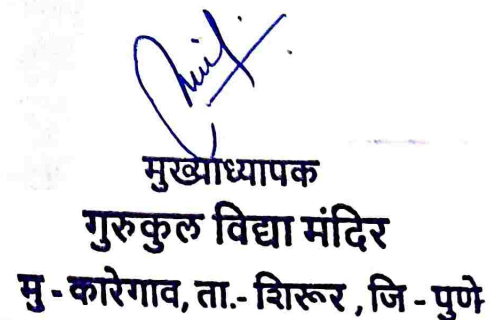 मुख्याध्यापक
गुरुकुल विद्या मंदिर
मु - कारेगाव, ता.- शिरूर , जि - पुणे